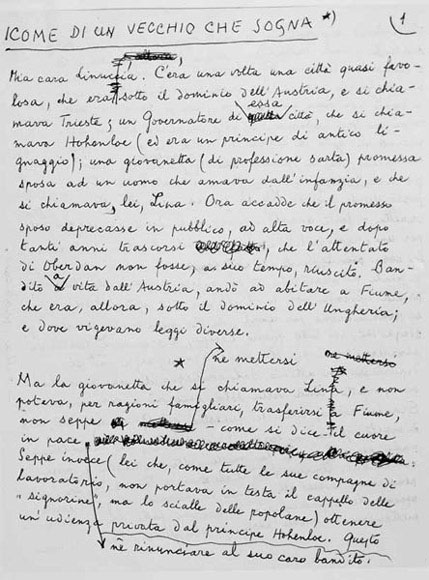 1
ICOME DI UN VECCHIO CHE SOGNA *)
Mia cara Linuccia. C'era una volta una città quasi favo-
losa, che era sotto il dominio dell'Austria, e si chia-
mava Trieste; un Governatore di essa città, che si chia-
mava Hohenloe (ed era un principe di antico li-
gnaggio); una giovanetta (di professione sarta) promessa
sposa ad un uomo che amava dall'infanzia, e che
si chiamava, lei, Lina. Ora accadde che il promesso
sposo deprecasse in pubblico, ad alta voce, e dopo
tanti anni trascorsi, che l'attentato
di Oberdan non fosse, a suo tempo, riuscito. Ban-
dito a vita dall'Austria, andò ad abitare a Fiume,
che era, allora, sotto il dominio dell'Ungheria;
e dove vigevano leggi diverse.
*
né mettersi
Ma la giovanetta che si chiamava Lina, e non
poteva, per ragioni famigliari, trasferirsi a Fiume,
non seppe - come si dice - il cuore
in pace
Seppe invece (lei che, come tutte le sue compagne di
lavoratorio, non portava in testa il cappello delle
"signorine", ma lo scialle delle popolane) ottenere
un'udienza privata dal principe Hohenloe. Questo
né rinunciare al suo caro bandito.